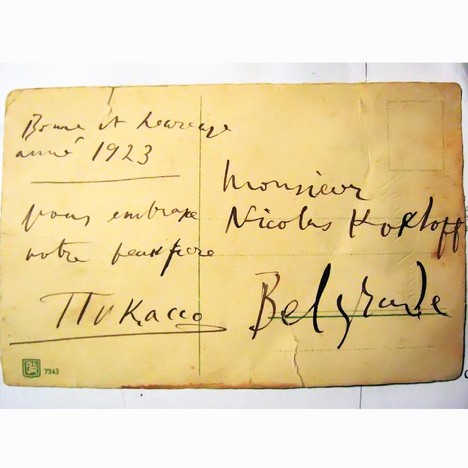 Bonne et heureuse
anné 1923
vous embrasse
votre beau frere
Пикассо
Monsieur
Nicolas Kokloff
Belgrade
7243